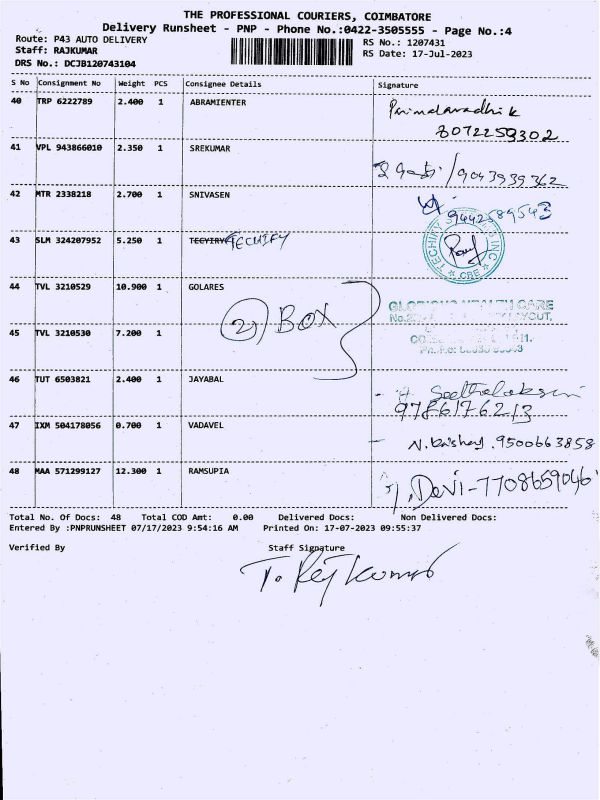 THE PROFESSIONAL COURIERS, COIMBATORE
Delivery Runsheet - PNP - Phone No.:0422-3505555 - Page No.:4
Route: P43 AUTO DELIVERY
RS No.: 1207431
Staff: RAJKUMAR
RS Date: 17-Jul-2023
DRS No.: DCJB120743104
S No Consignment No Weight PCS Consignee Details Signature
40 TRP 6222789 2.400 1 ABRAMIENTER
8072259302
41 VPL 943866010 2.350 1 SREKUMAR
/9043939362
42 MTR 2338218 2.700 1 SNIVASEN
9442589543
43 SLM 324207952 5.250 1 TECHIFY
TECHIFY INC CBE
44 TVL 3210529 10.900 1 GOLARES
GLORIOUS HEALTH CARE
2) BOX
45 TVL 3210530 7.200 1
46 TUT 6503821 2.400 1 JAYABAL
9786176213
47 IXM 504178056 0.700 1 VADAVEL
9500663858
48 MAA 571299127 12.300 1 RAMSUPIA
Devi-7708659046
Total No. Of Docs: 48 Total COD Amt: 0.00 Delivered Docs: Non Delivered Docs:
Entered By :PNPRUNSHEET 07/17/2023 9:54:16 AM Printed On: 17-07-2023 09:55:37
Verified By Staff Signature
T. Rajkumar